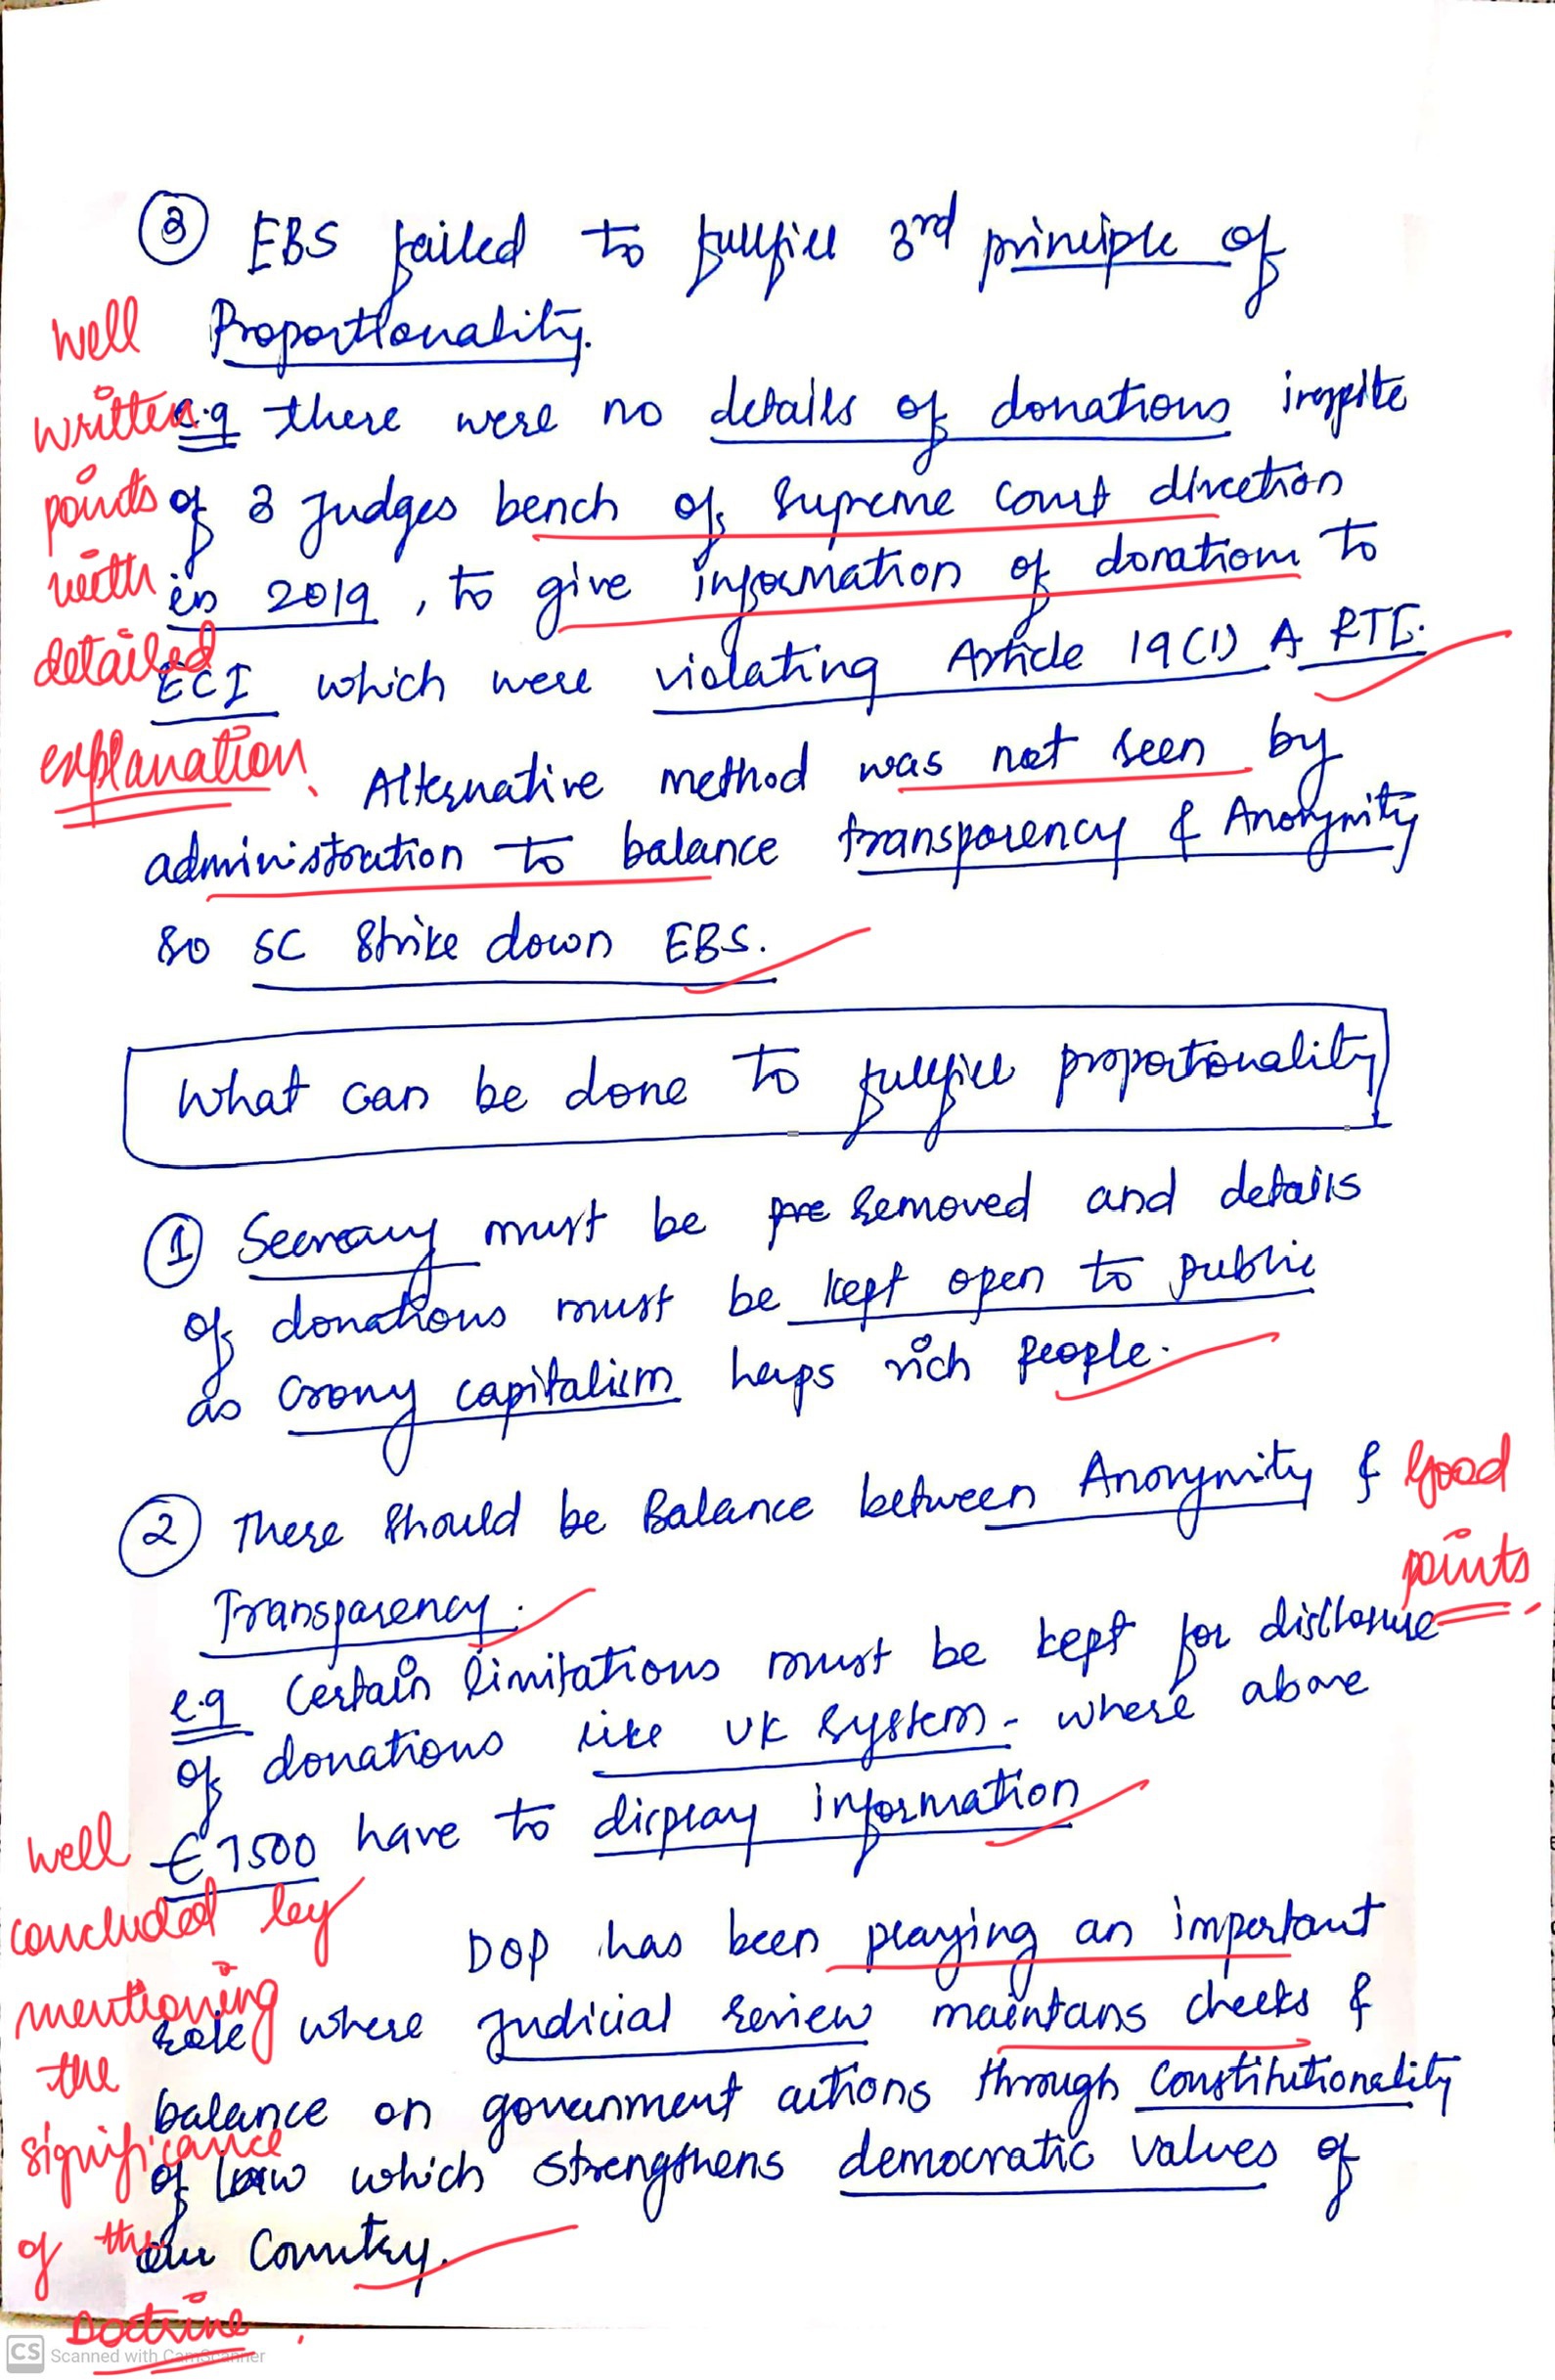 ③ EBS failed to fullfill 3rd principle of
Proportionality.
e.g there were no details of donations irespite
of 3 Judges bench of Supreme Court direction
in 2019, to give information of donations to
ECI which were violating Article 19(1) A RTI.
Alternative method was not seen by
administration to balance transparency & Anonymity
so SC Strike down EBS.
well
written
points
with
detailed
explanation.
What can be done to fullfill proportionality
① Secrecy must be removed and details
of donations must be kept open to public
as crony capitalism helps rich people.
② There should be Balance between Anonymity &
Transparency.
e.g Certain limitations must be kept for disclosure
of donations like UK system - where above
€7500 have to display information
Good
points.
DOP has been playing an important
role where judicial review maintans checks &
balance on government actions through Constitutionality
of law which strengthens democratic values of
our Country.
well
concluded by
mentioning
the
significance
of the
Doctrine.
CS Scanned with CamScanner